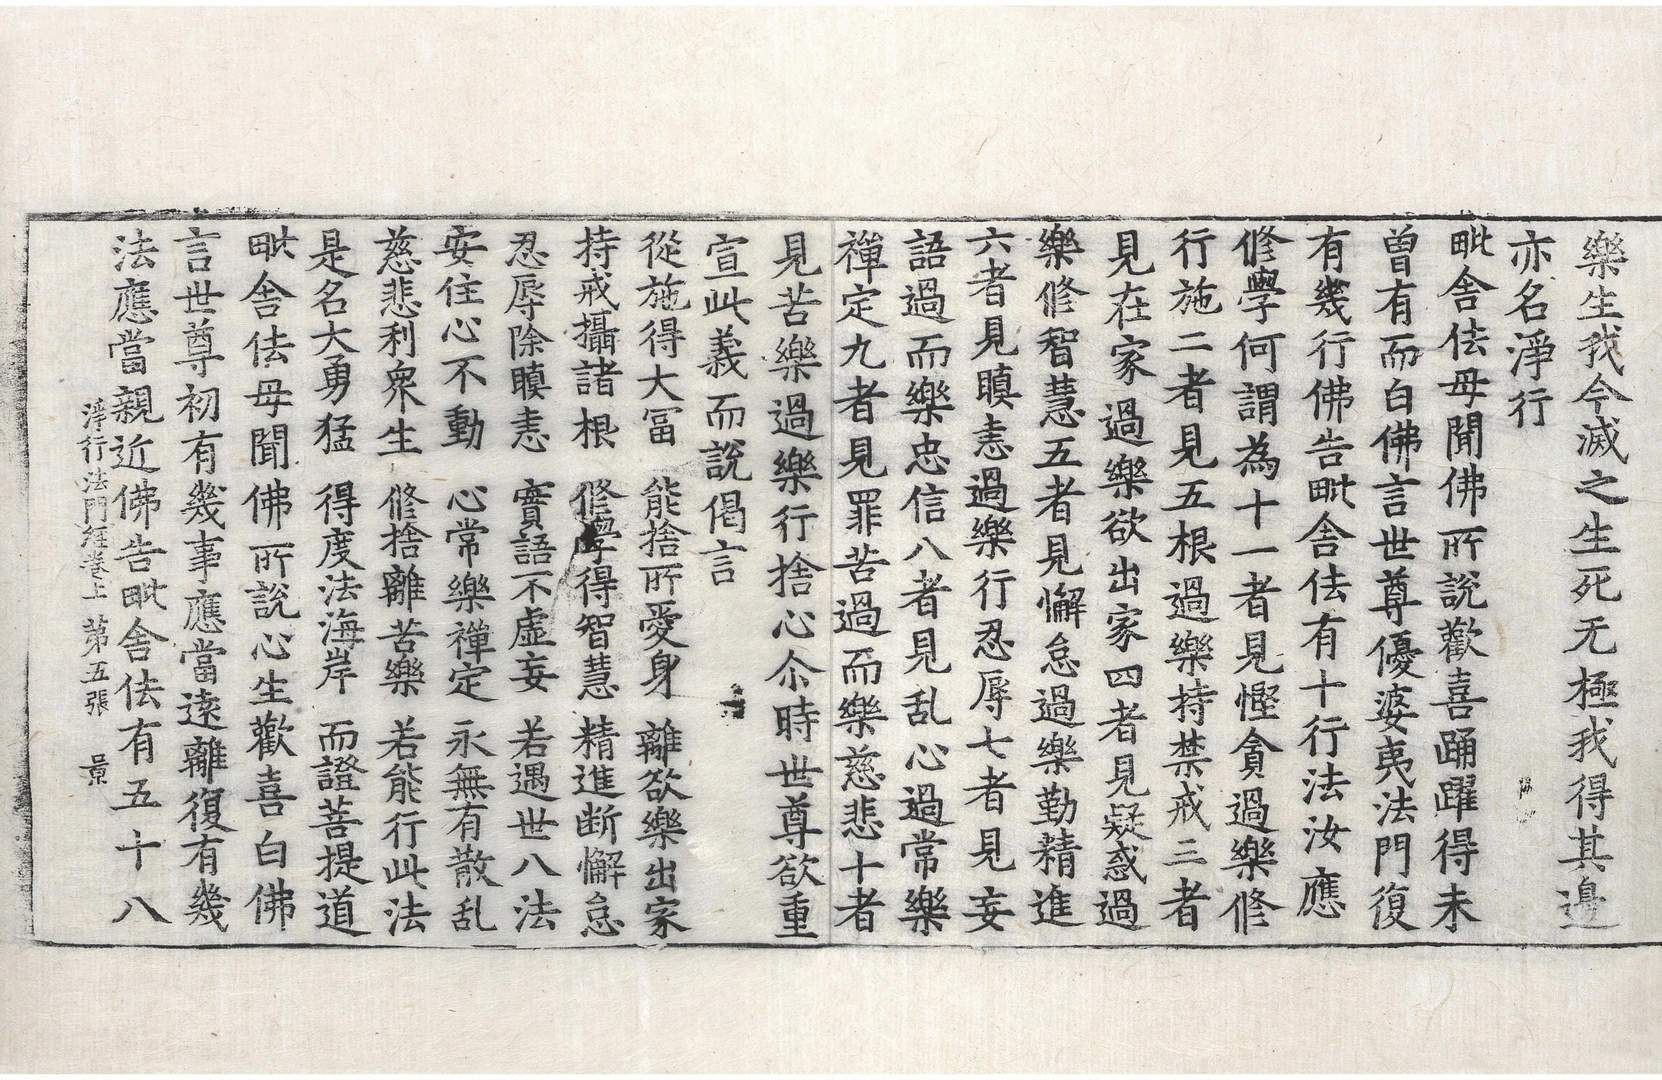 樂生我今滅之生死无極我得其邊
亦名淨行
毗舍佉母聞佛所說歡喜踊躍得未
曾有而白佛言世尊優婆夷法門復
有幾行佛告毗舍佉有十行法汝應
修學何謂為十一者見慳貪過樂修
行施二者見五根過樂持禁戒三者
見在家過樂欲出家四者見疑惑過
樂修智慧五者見懈怠過樂勤精進
六者見瞋恚過樂行忍辱七者見妄
語過而樂忠信八者見乱心過常樂
禪定九者見罪苦過而樂慈悲十者
見苦樂過樂行捨心尒時世尊欲重
宣此義而說偈言
從施得大冨 能捨所愛身 離欲樂出家
持戒攝諸根 修學得智慧 精進断懈怠
忍辱除瞋恚 實語不虛妄 若遇世八法
安住心不動 心常樂禪定 永無有散乱
慈悲利衆生 修捨離苦樂 若能行此法
是名大勇猛 得度法海岸 而證菩提道
毗舍佉母聞佛所說心生歡喜白佛
言世尊初有幾事應當遠離復有幾
法應當親近佛告毗舍佉有五十八
淨行法門経卷上 第五張 景